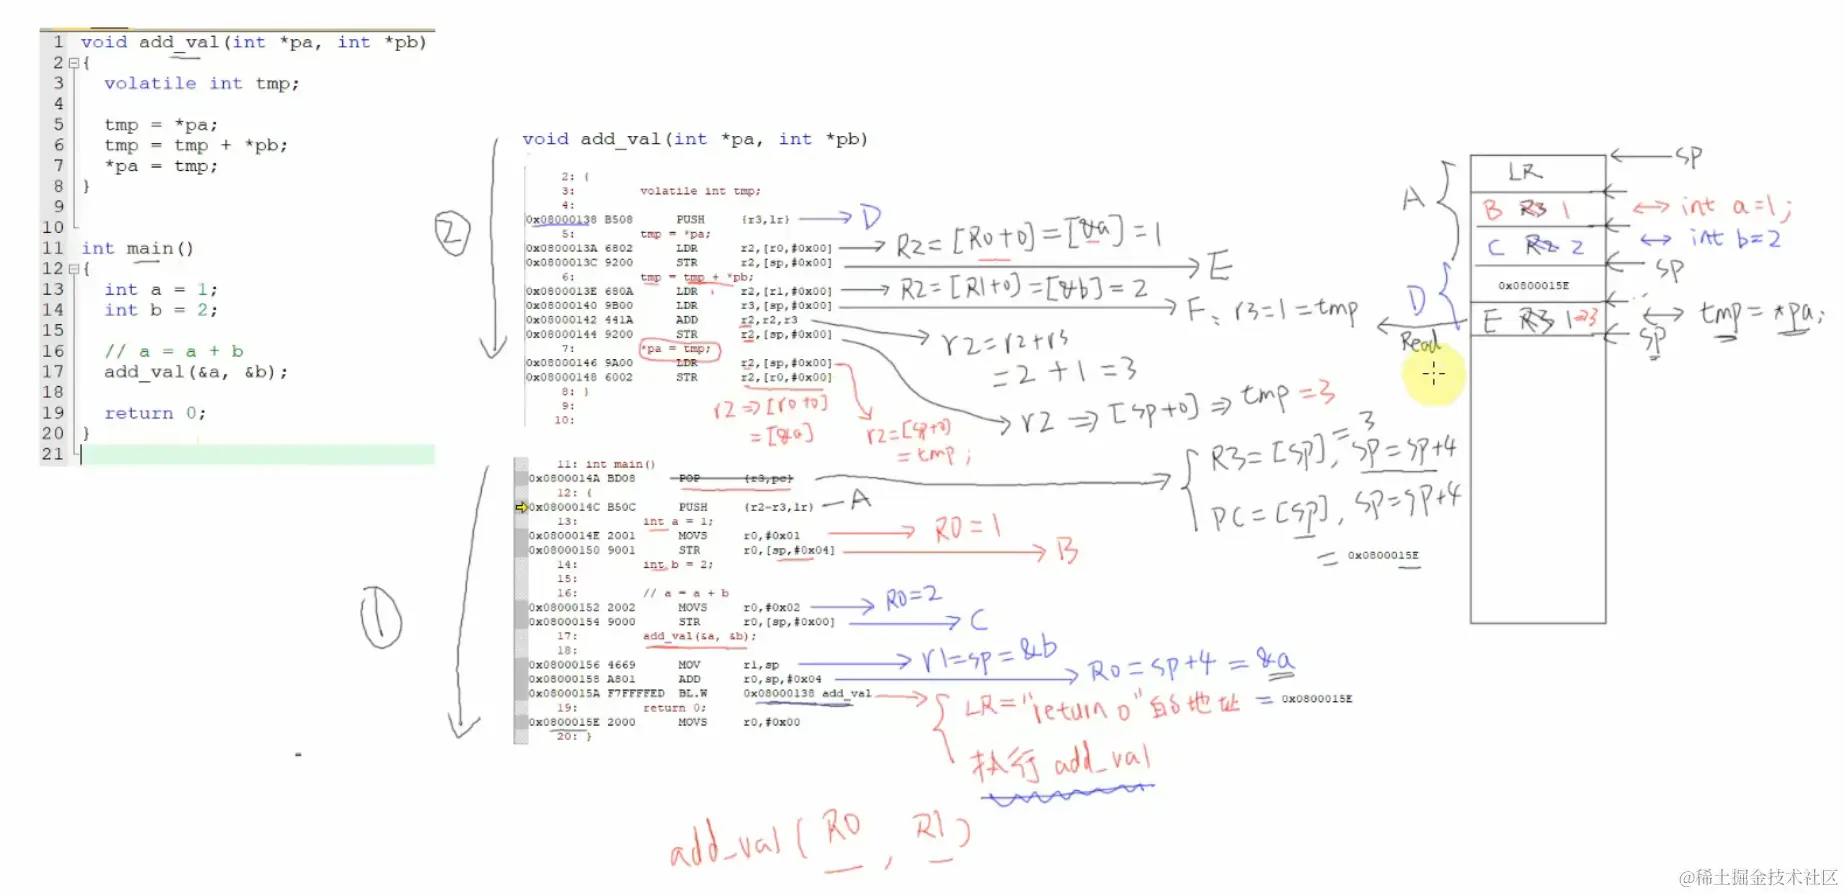 1 void add_val(int *pa, int *pb)
2 {
3 volatile int tmp;
4
5 tmp = *pa;
6 tmp = tmp + *pb;
7 *pa = tmp;
8 }
9
10
11 int main()
12 {
13 int a = 1;
14 int b = 2;
15
16 // a = a + b
17 add_val(&a, &b);
18
19 return 0;
20 }
21
②
void add_val(int *pa, int *pb)
2: {
3: volatile int tmp;
4:
0x08000138 B508 PUSH {r3,lr} D
5: tmp = *pa;
0x0800013A 6802 LDR r2,[r0,#0x00] R2=[R0+0]=[&a]=1
0x0800013C 9200 STR r2,[sp,#0x00] E
6: tmp = tmp + *pb;
0x0800013E 680A LDR r2,[r1,#0x00] R2=[R1+0]=[&b]=2
0x08000140 9B00 LDR r3,[sp,#0x00] F: r3=1=tmp
0x08000142 441A ADD r2,r2,r3
r2=r2+r3
=2+1=3
0x08000144 9200 STR r2,[sp,#0x00]
r2⇒[sp+0]⇒tmp=3
7: *pa = tmp;
0x08000146 9A00 LDR r2,[sp,#0x00]
0x08000148 6002 STR r2,[r0,#0x00]
8: }
9:
10:
r2⇒[r0+0]
=[&a]
r2=[sp+0]
=tmp;
①
11: int main()
0x0800014A BD08 POP {r3,pc}
R3=[SP]=3, SP=SP+4
PC=[SP], SP=SP+4
= 0x0800015E
12: {
0x0800014C B50C PUSH {r2-r3,lr} A
13: int a = 1;
0x0800014E 2001 MOVS r0,#0x01 R0=1
0x08000150 9001 STR r0,[sp,#0x04] B
14: int b = 2;
15:
16: // a = a + b
0x08000152 2002 MOVS r0,#0x02 R0=2
0x08000154 9000 STR r0,[sp,#0x00] C
17: add_val(&a, &b);
18:
0x08000156 4669 MOV r1,sp r1=sp=&b
0x08000158 A801 ADD r0,sp,#0x04 R0=sp+4=&a
0x0800015A F7FFFFED BL.W 0x08000138 add_val
19: return 0;
LR="return 0"的地址 = 0x0800015E
0x0800015E 2000 MOVS r0,#0x00
20: }
执行 add_val
add_val(R0, R1)
SP
A
LR
B R3 1 int a=1;
C R2 2 int b=2
SP
D
0x0800015E
E R3 1⇒3 tmp=*pa;
Read
SP
@稀土掘金技术社区